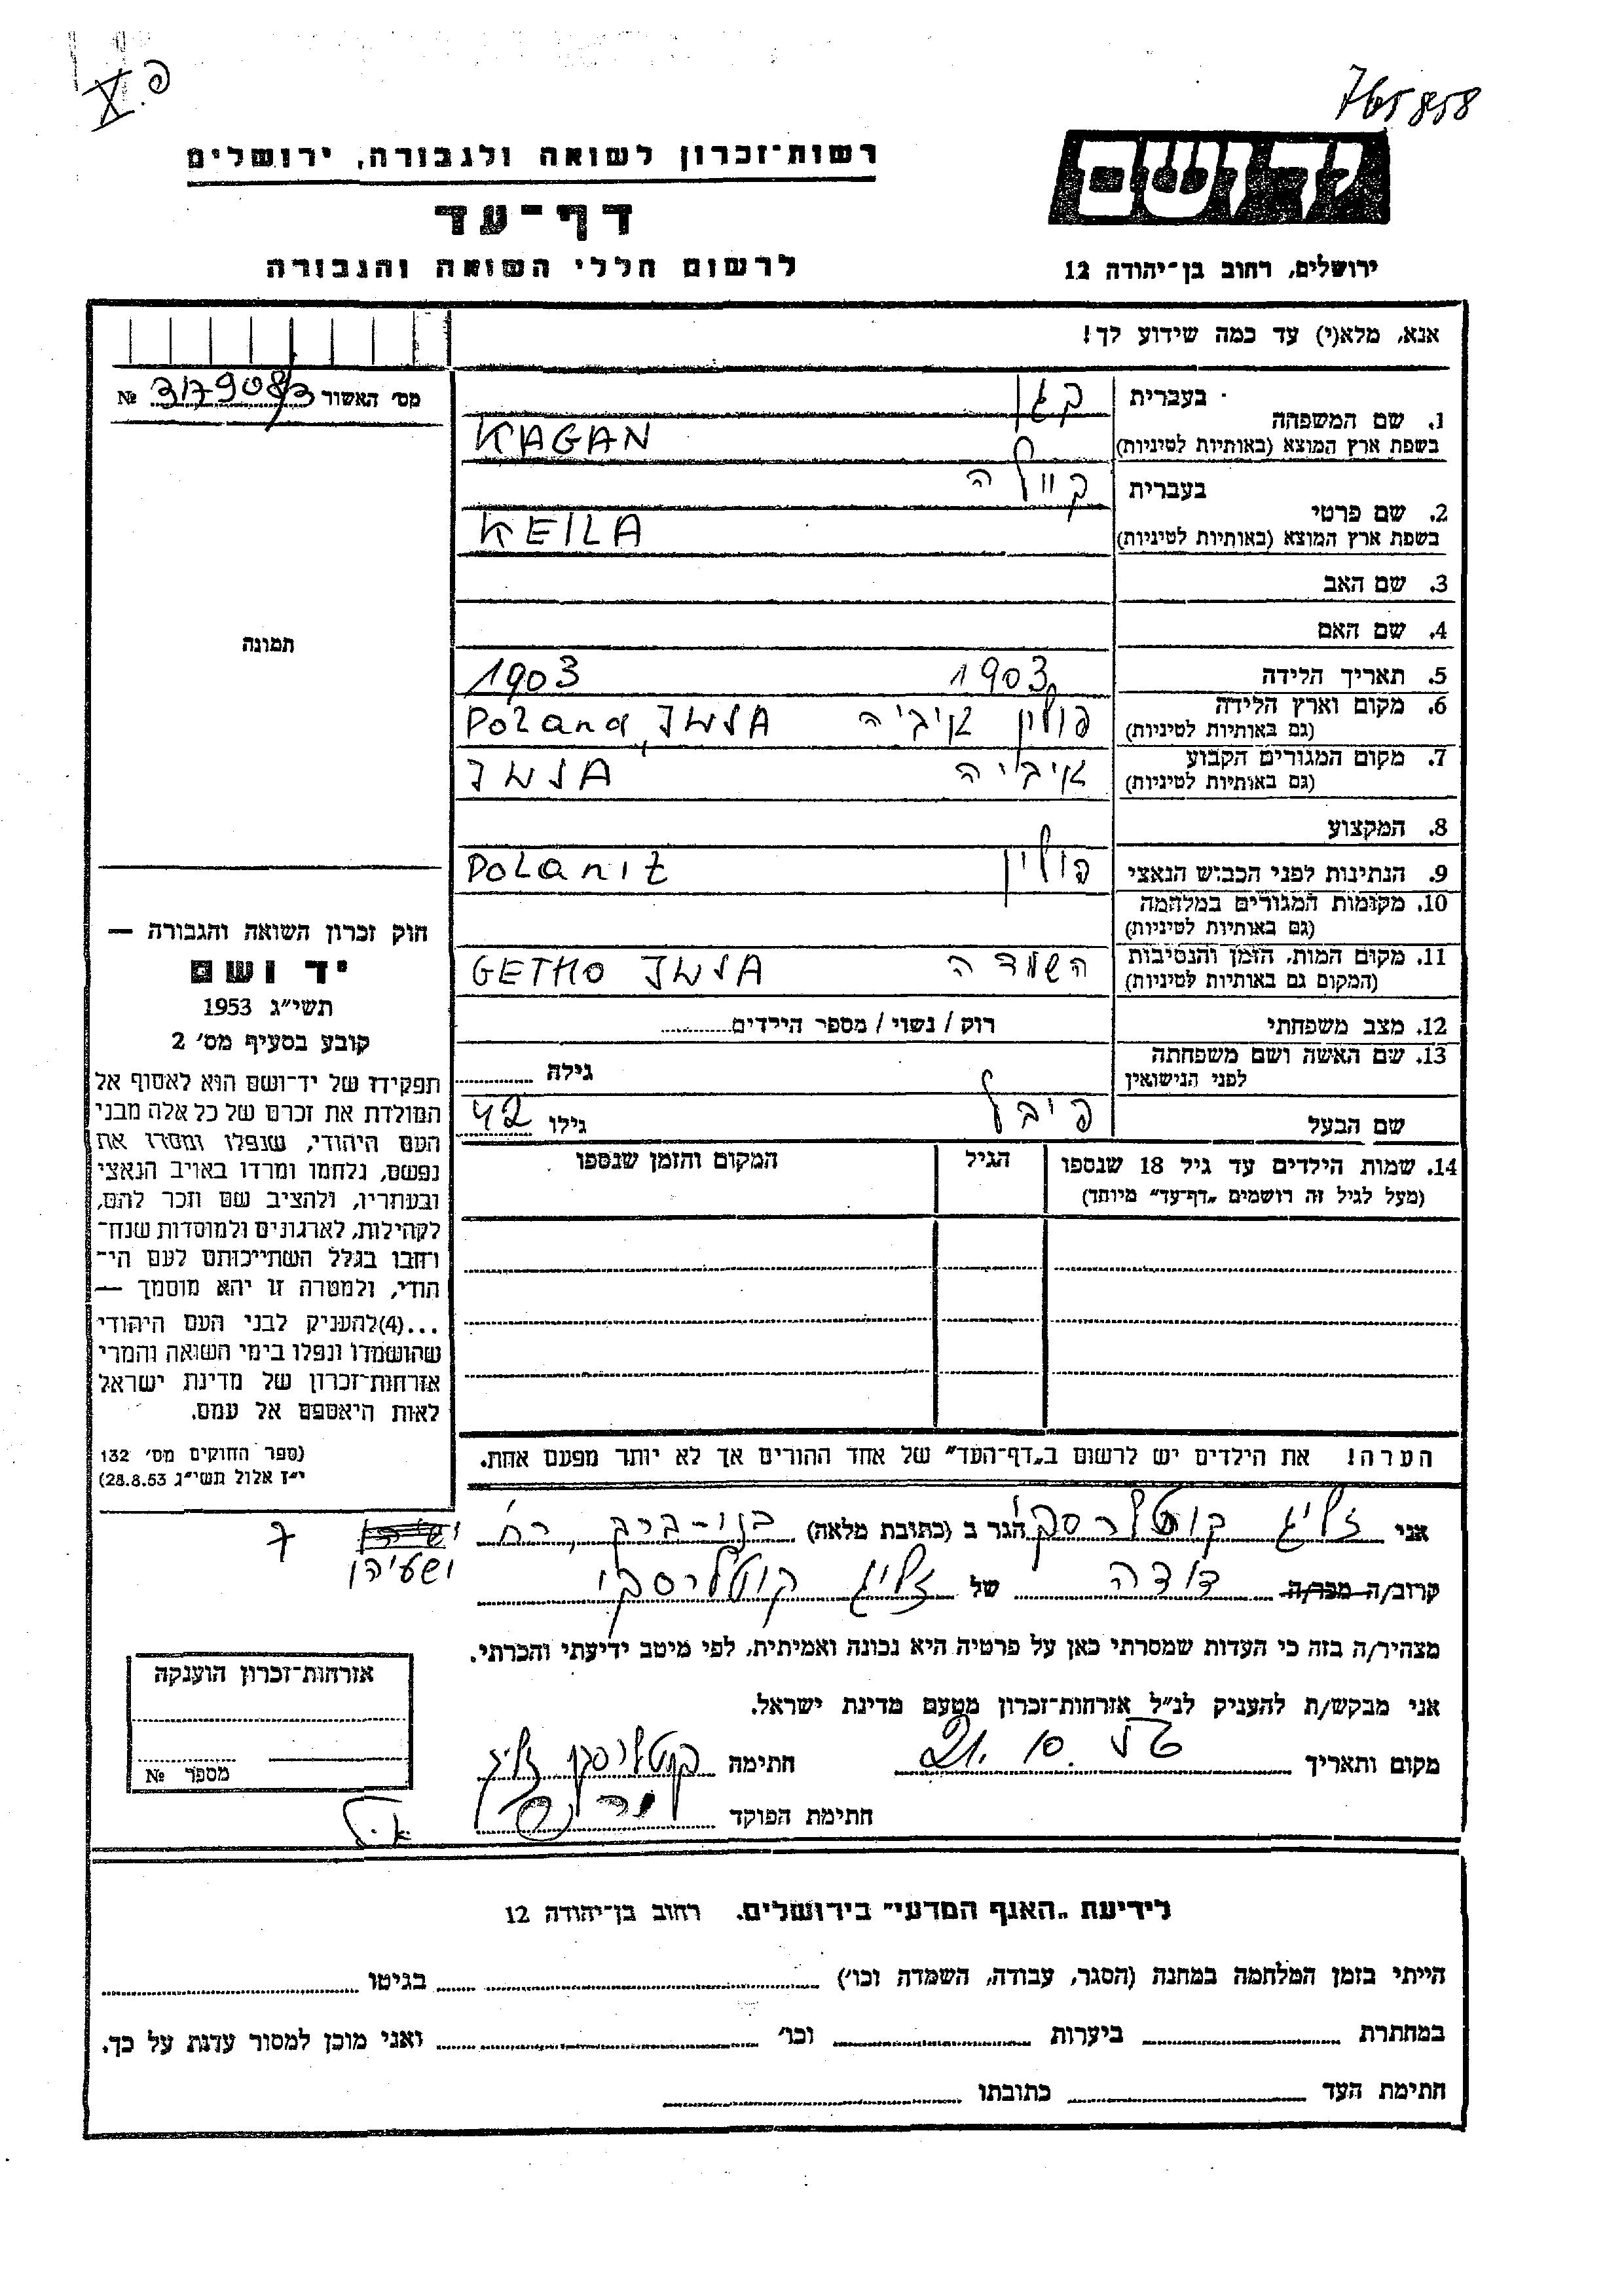 765858
רשות־זכרון לשואה ולגבורה, ירושלים
ידושם
דף־עד
לרשום חללי השואה והגבורה
ירושלים, רחוב בן־יהודה 12
אנא, מלא(י) עד כמה שידוע לך!
מס׳ האשור № 317908/3
1. שם המשפחה
בעברית כגן
בשפת ארץ המוצא (באותיות לטיניות) KAGAN
2. שם פרטי
בעברית קיילה
בשפת ארץ המוצא (באותיות לטיניות) KEILA
3. שם האב
4. שם האם
תמונה
5. תאריך הלידה 1903 1903
6. מקום וארץ הלידה
(גם באותיות לטיניות) פולין איביה Poland,
7. מקום המגורים הקבוע
(גם באותיות לטיניות) איביה
8. המקצוע
9. הנתינות לפני הכבוש הנאצי פולין
10. מקומות המגורים במלחמה
(גם באותיות לטיניות)
11. מקום המות, הזמן והנסיבות
(המקום גם באותיות לטיניות) השמדה
12. מצב משפחתי רוק / נשוי / מספר הילדים
13. שם האשה ושם משפחתה
לפני הנישואין גילה
שם הבעל פיבל גילו 42
14. שמות הילדים עד גיל 18 שנספו
(מעל לגיל זה רושמים „דף־עד״ מיוחד)
הגיל
המקום והזמן שנספו
חוק זכרון השואה והגבורה —
יד ושם
תשי״ג 1953
קובע בסעיף מס׳ 2
תפקידו של יד־ושם הוא לאסוף אל
המולדת את זכרם של כל אלה מבני
העם היהודי, שנפלו ומסרו את
נפשם, נלחמו ומרדו באויב הנאצי
ובעוזריו, ולהציב שם וזכר להם,
לקהילות, לארגונים ולמוסדות שנח־
רחבו בגלל השתייכותם לעם הי־
הודי, ולמטרה זו יהא מוסמך —
...(4)להעניק לבני העם היהודי
שהושמדו ונפלו בימי השואה והמרי
אזרחות־זכרון של מדינת ישראל
לאות היאספם אל עמם.
(ספר החוקים מס׳ 132
י״ז אלול תשי״ג 28.8.53)
הערה! את הילדים יש לרשום ב„דף־העד״ של אחד ההורים אך לא יותר מפעם אחת.
אני זליג קוטלרסקי הגר ב (כתובת מלאה) בני-ברק, רח׳
ישעיהו 7
קרוב/ה מכר/ה דודה של זליג קוטלרסקי
מצהיר/ה בזה כי העדות שמסרתי כאן על פרטיה היא נכונה ואמיתית, לפי מיטב ידיעתי והכרתי.
אני מבקש/ת להעניק לנ״ל אזרחות־זכרון מטעם מדינת ישראל.
מקום ותאריך 21. 10. חתימה קוטלרסקי זליג
חתימת הפוקד
אזרחות־זכרון הוענקה
מספר №
לידיעת „האגף המדעי״ בירושלים. רחוב בן־יהודה 12
הייתי בזמן המלחמה במחנה (הסגר, עבודה, השמדה וכו׳) בגיטו
במחתרת ביערות וכו׳ ואני מוכן למסור עדות על כך.
חתימת העד כתובתו